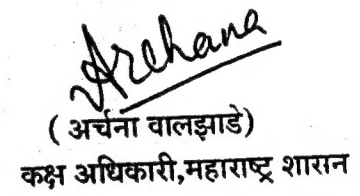 Archana
( अर्चना वालझाडे)
कक्ष अधिकारी,महाराष्ट्र शासन